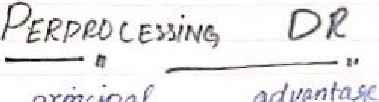 PERPROCESSING DR
principal advantage